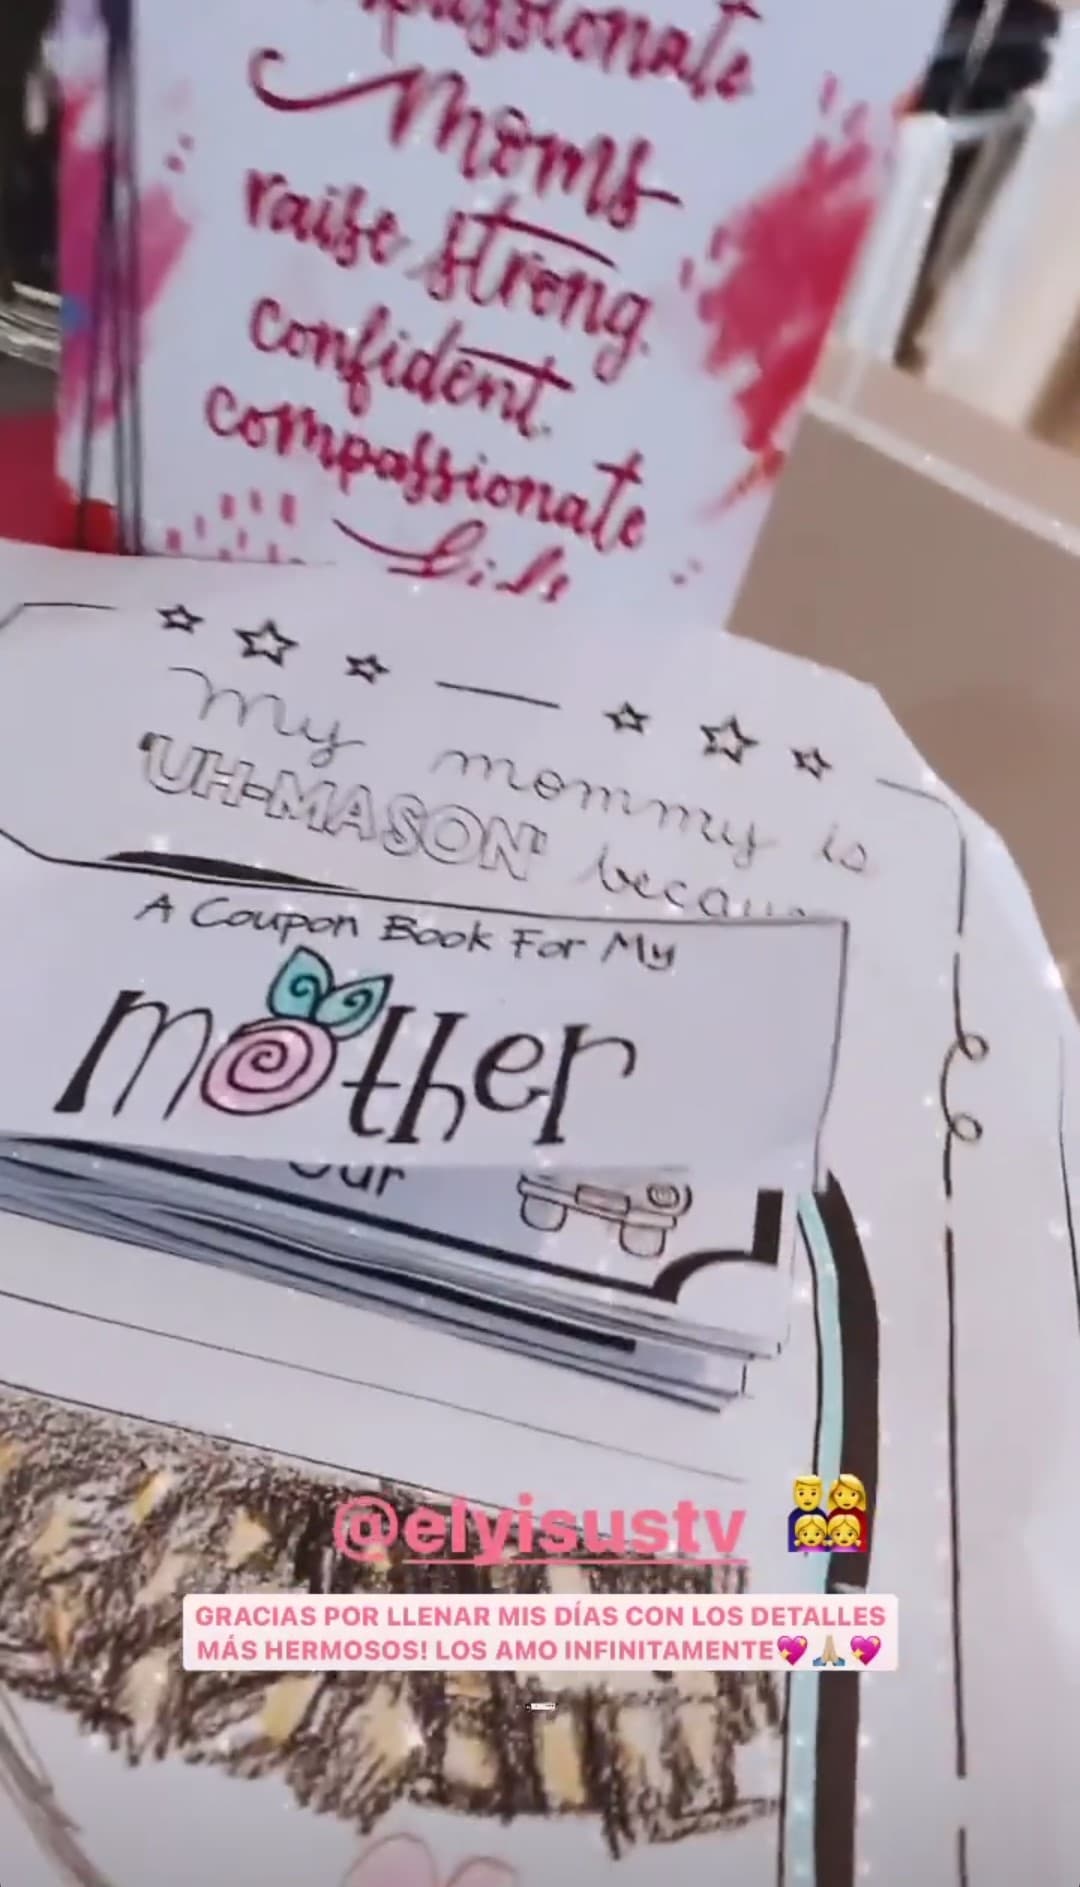 Moms
raise strong,
confident,
compassionate
kids
my mommy is
"UH-MASON" because
A Coupon Book For My
mother
our
@elyisustv
GRACIAS POR LLENAR MIS DÍAS CON LOS DETALLES
MÁS HERMOSOS! LOS AMO INFINITAMENTE💖🙏🏼💖